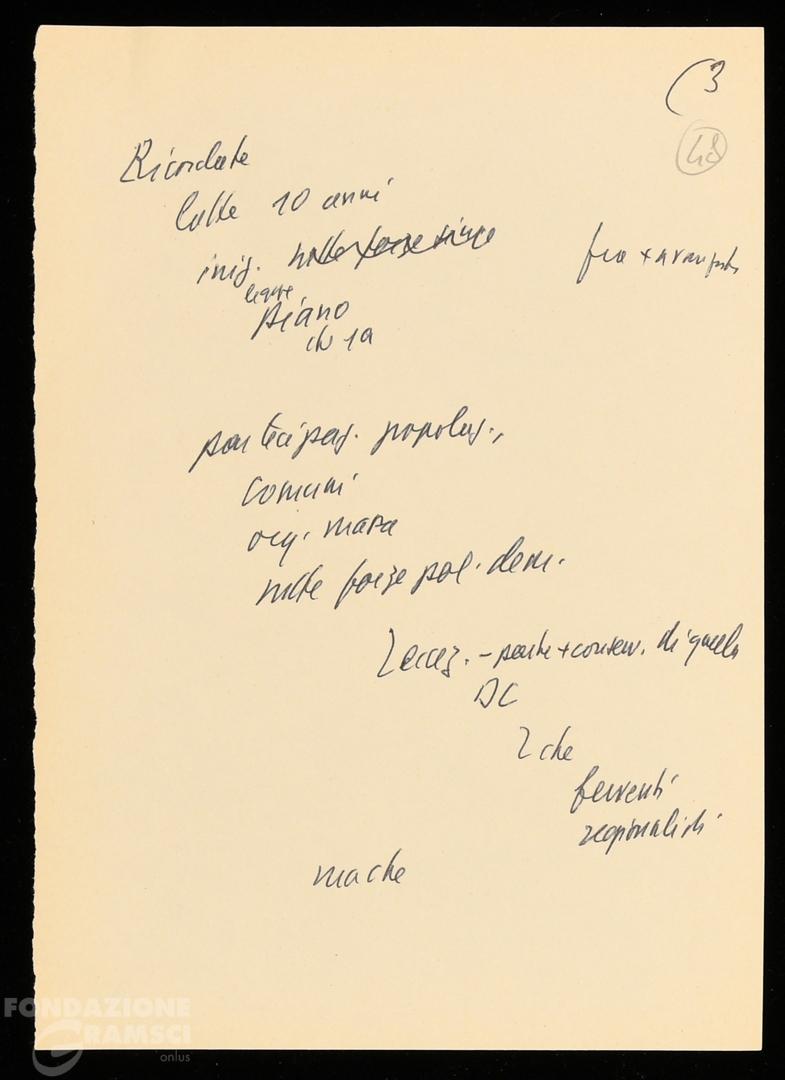 (3
48
Ricordate
lotte 10 anni
iniz. molte forze singe
fra + avanzate
legge
piano
partecipaz. popolaz.,
comuni
org. massa
molte forze pol. dem.
eccez. - parte + conserv. di quella
DC
2 che
ferventi
regionalisti
ma che
FONDAZIONE
GRAMSCI
onlus